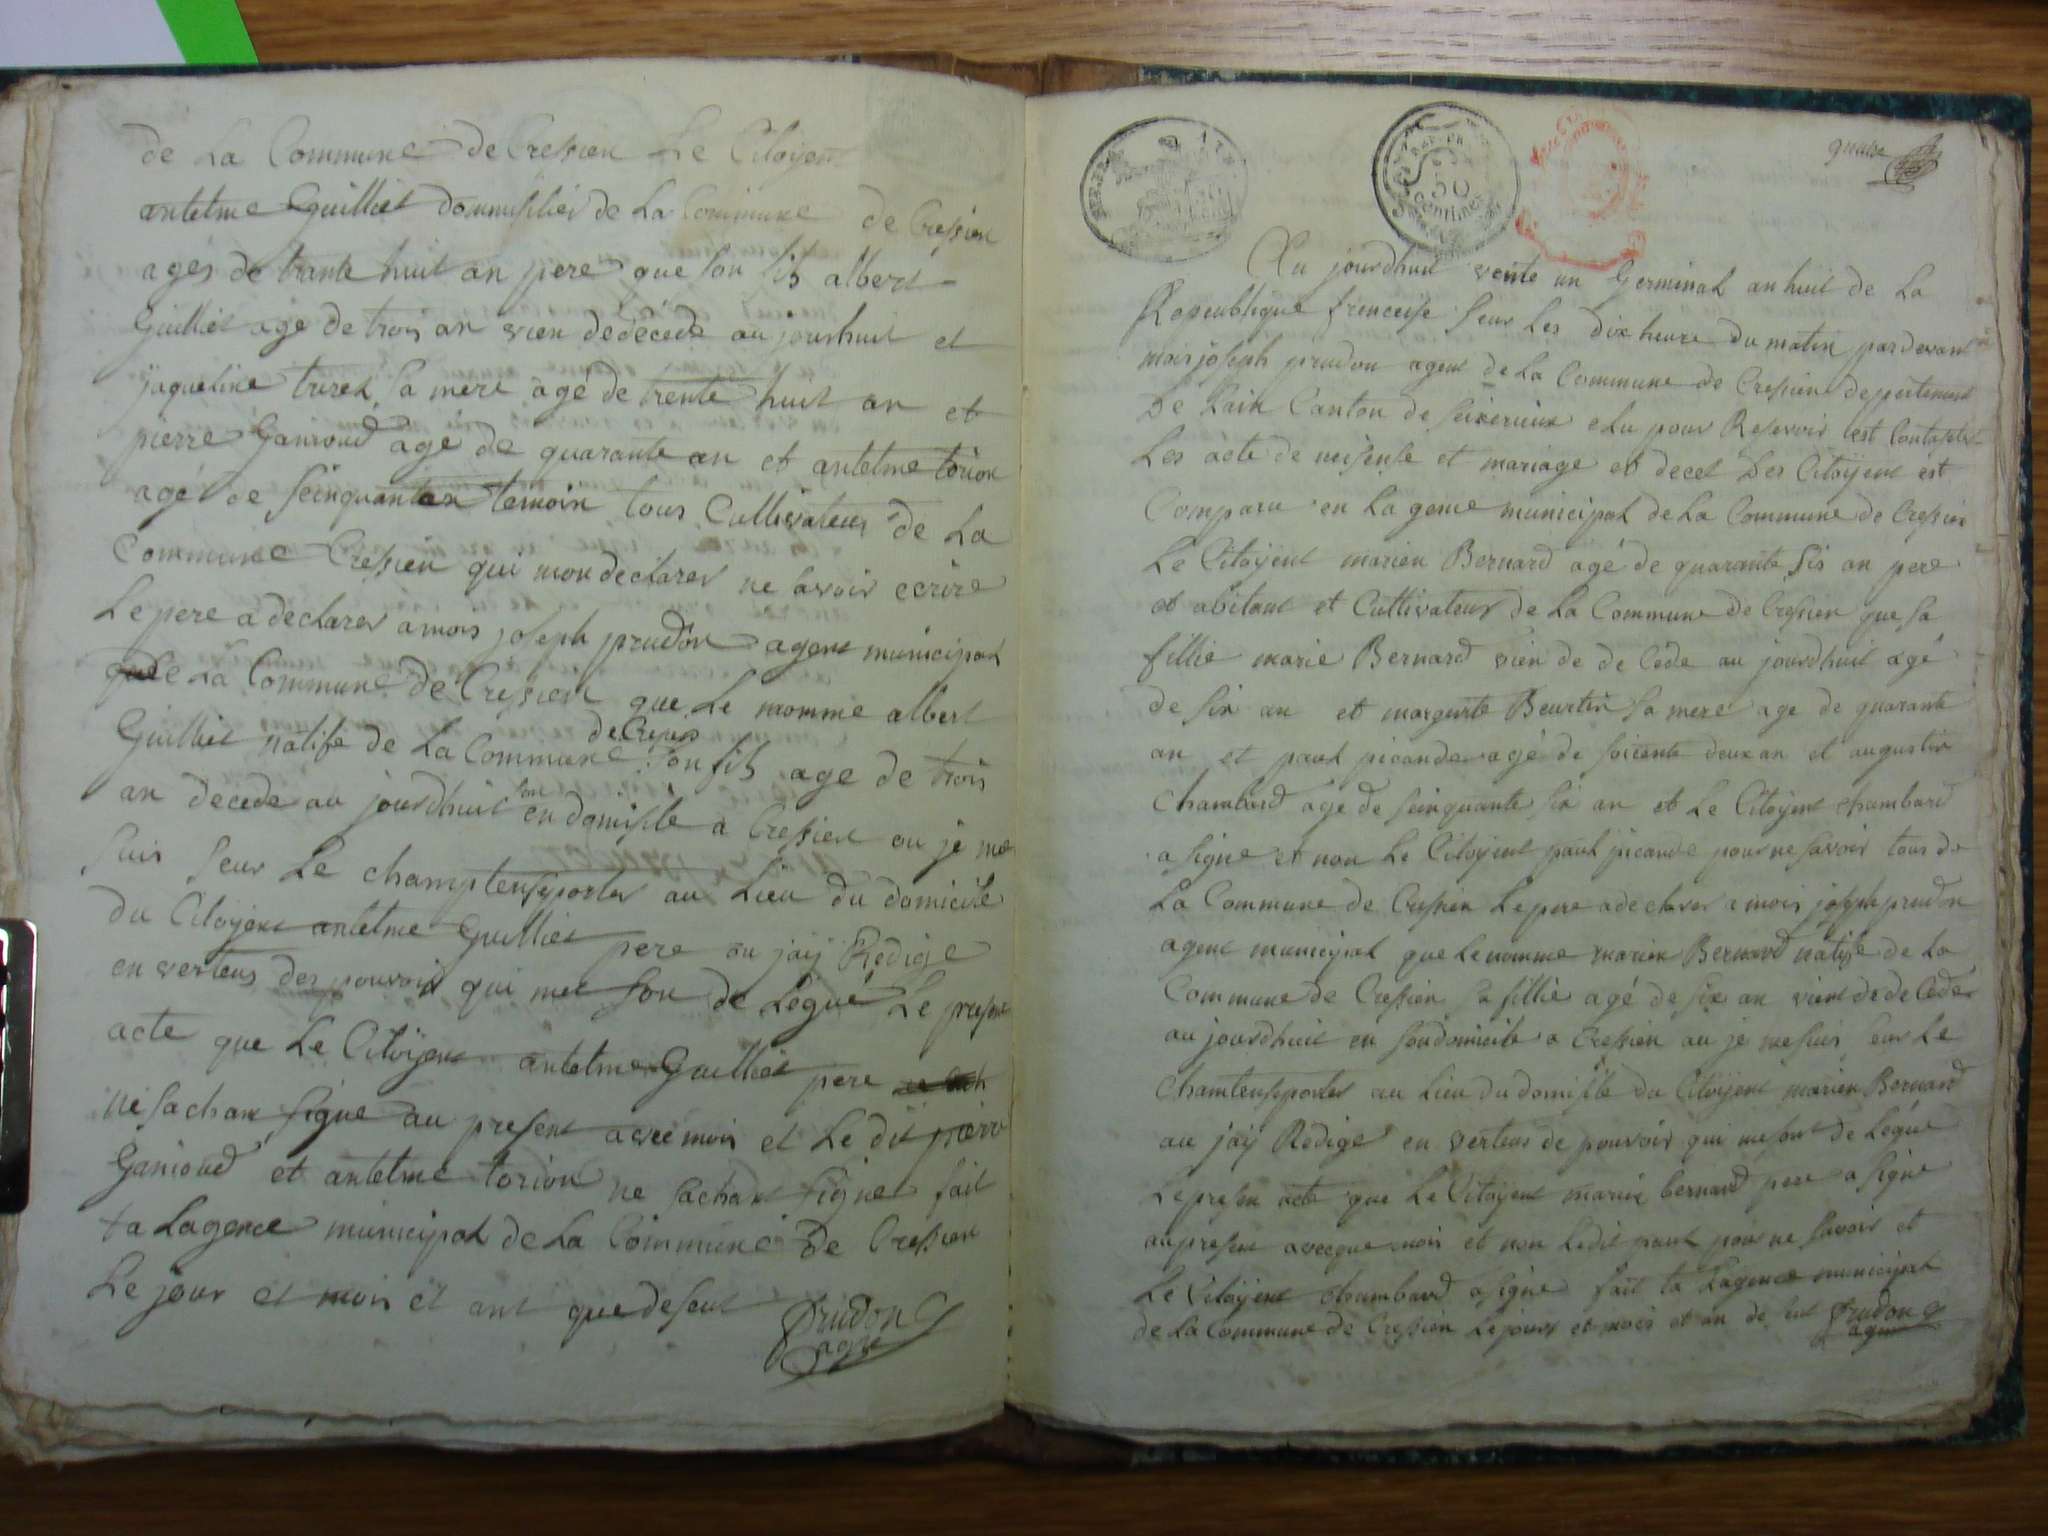 de La Commune de Cressieu Le Citoyent
antelme Guilliet dommisilier de La Commune de Cressieu
agés de trante huit an pere que son fils albert
Guilliet age de trois an vien dedécede au jourhuit et
jaqueline sa mere agé de trente huit an et
pierre Ganioud agé de quarante an et antelme torion
agé de seinquante an temoin tous Cultivateur de La
Commune Cressieu qui mon declarer ne savoir ecrire
Le pere a declarer a mois joseph prudon agent municipal
de La Commune de Cressieu que Le nomme albert
Guilliet natife de La Commune de Cressieu son fils age de trois
an decede au jourdhuit en son domisile a Cressieu ou je me
suis seur Le champ tensporter au Lieu du domicile
du Citoÿent antelme Guilliet pere ou jaÿ Redige
en verteus des pouvoir qui me son de Legué Le present
acte que Le Citoÿent antelme Guilliet pere
ne sachan signe au present avec mois et Le dit pierre
Ganioud et antelme torion ne sachant signer fait
ta Lagence municipal de La Commune de Cressieu
Le jour et mois et ant que deseut Prudon
agent
REP. FR.
50
centimes
Au jourdhuit vente un Germinal an huit de La
Ropeublique frenceise seur Les dix heure du matin pardevant
mois joseph prudon agent de La Commune de Cressieu depertement
De Lain Canton de seiverieux elu pour Resevoir est Contaster
Les acte de neisense et mariage et decet Des Citoÿent est
Comparu en La gence municipal de La Commune de Cressieu
Le Citoÿent marien Bernard agé de quarante sis an pere
et abitant et Cultivateur de La Commune de Cressieu que sa
fillie marie Bernard vien de de Cede au jourdhuit agé
de six an et margerite Beurtin sa mere age de quarante
an et paul picande agé de soicente deux an et augustin
Chambard age de seinquante six an et Le Citoÿent Chambard
a signe et non Le Citoÿent paul picande pour ne savoir tous de
La Commune de Cressieu Le pere a declarer a mois joseph prudon
agent municipal que Le nomme marien Bernard natife de La
Commune de Cressieu sa fillie agé de six an vient de de Ceder
au jourdhuit en son domicile a Cressieu ou je me suis seur Le
Chamtensporter au Lieu du domisile du Citoÿent marien Bernard
ou jaÿ Redigé en verteus de pouvoir qui me sont de Légué
Le presen acte que Le Citoÿent marien bernard pere a signe
au present avecque mois et non Ledit paul pour ne savoir et
Le Citoÿent Chambard a signe fait ta Lagence municipal
de La Commune de Cressieu Le jour et mois et an de seut Prudon
agent